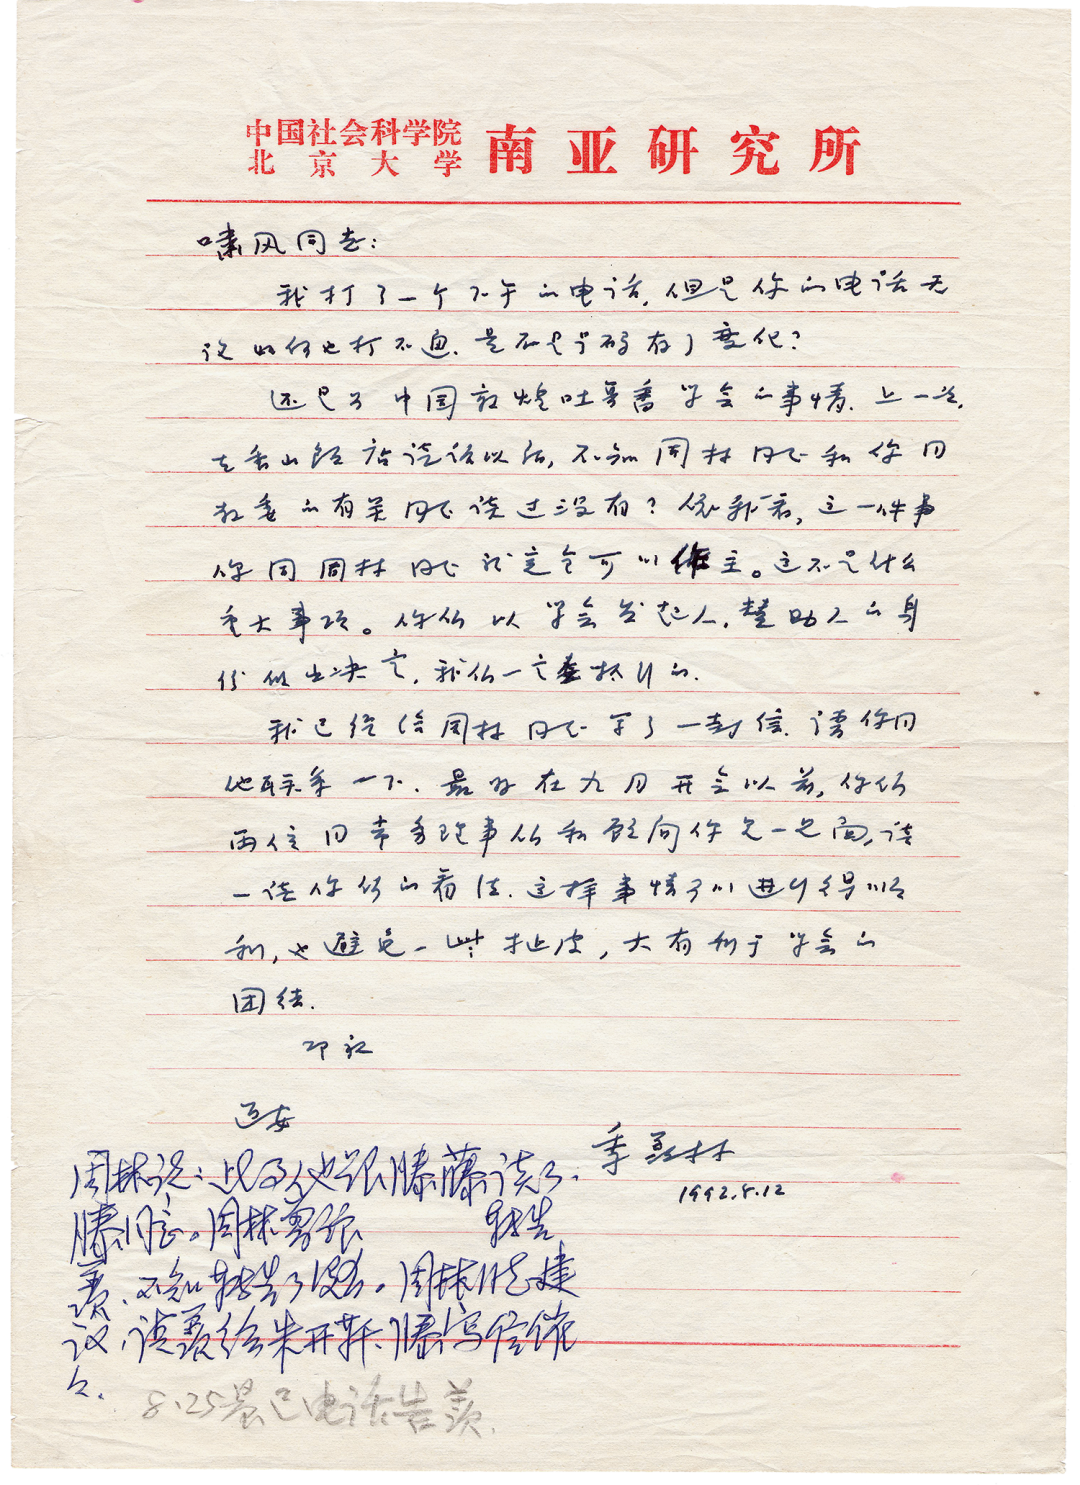 中国社会科学院
北京大学
南亚研究所
啸风同志:
我打了一个下午的电话,但是你的电话无
论如何也打不通.是不是号码有了变化?
还是为中国敦煌吐鲁番学会的事情.上一次
在香山饭店谈话以后,不知周林同志和你同
教委的有关同志谈过没有?依我看,这一件事
你同周林同志就完全可以作主。这不是什么
重大事项。你们以学会发起人,赞助人的身
份做出决定,我们一定会执行的.
我已经给周林同志写了一封信.请你同
他联系一下.最好在九月开会以前,你们
两位同常务理事们和顾问们见一见面,谈
一谈你们的看法.这样事情可以进行得顺
利,也避免一些扯皮,大有利于学会的
团结.
即祝
近安
季羡林
1992.8.12
周林说:此事他跟滕藤谈了.
滕同意。周林曾让 转告
羡、不知转告了没有。周林同志建
议,请羡给朱开轩、滕写信催
之.
8.25晨已电话告羡.